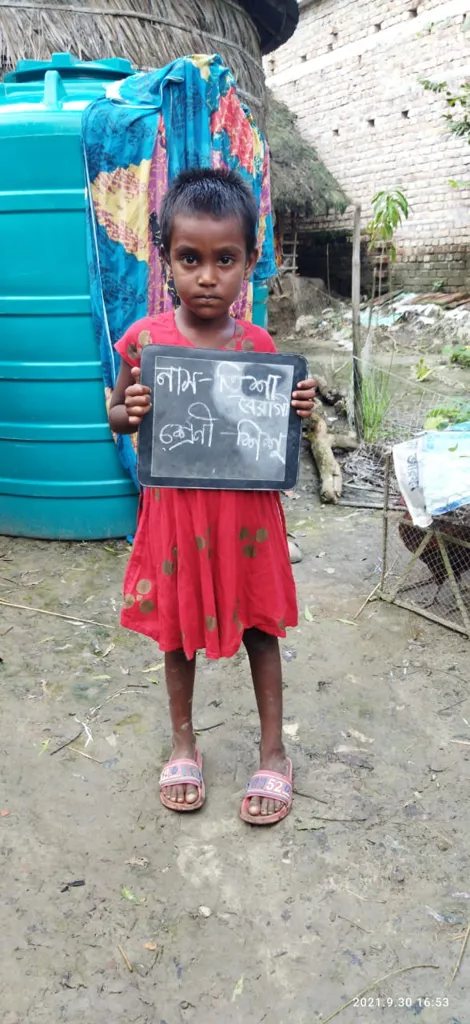 নাম- তিশা
বৈরাগী
শ্রেনী - শিশু
52
2021.9.30 16:53